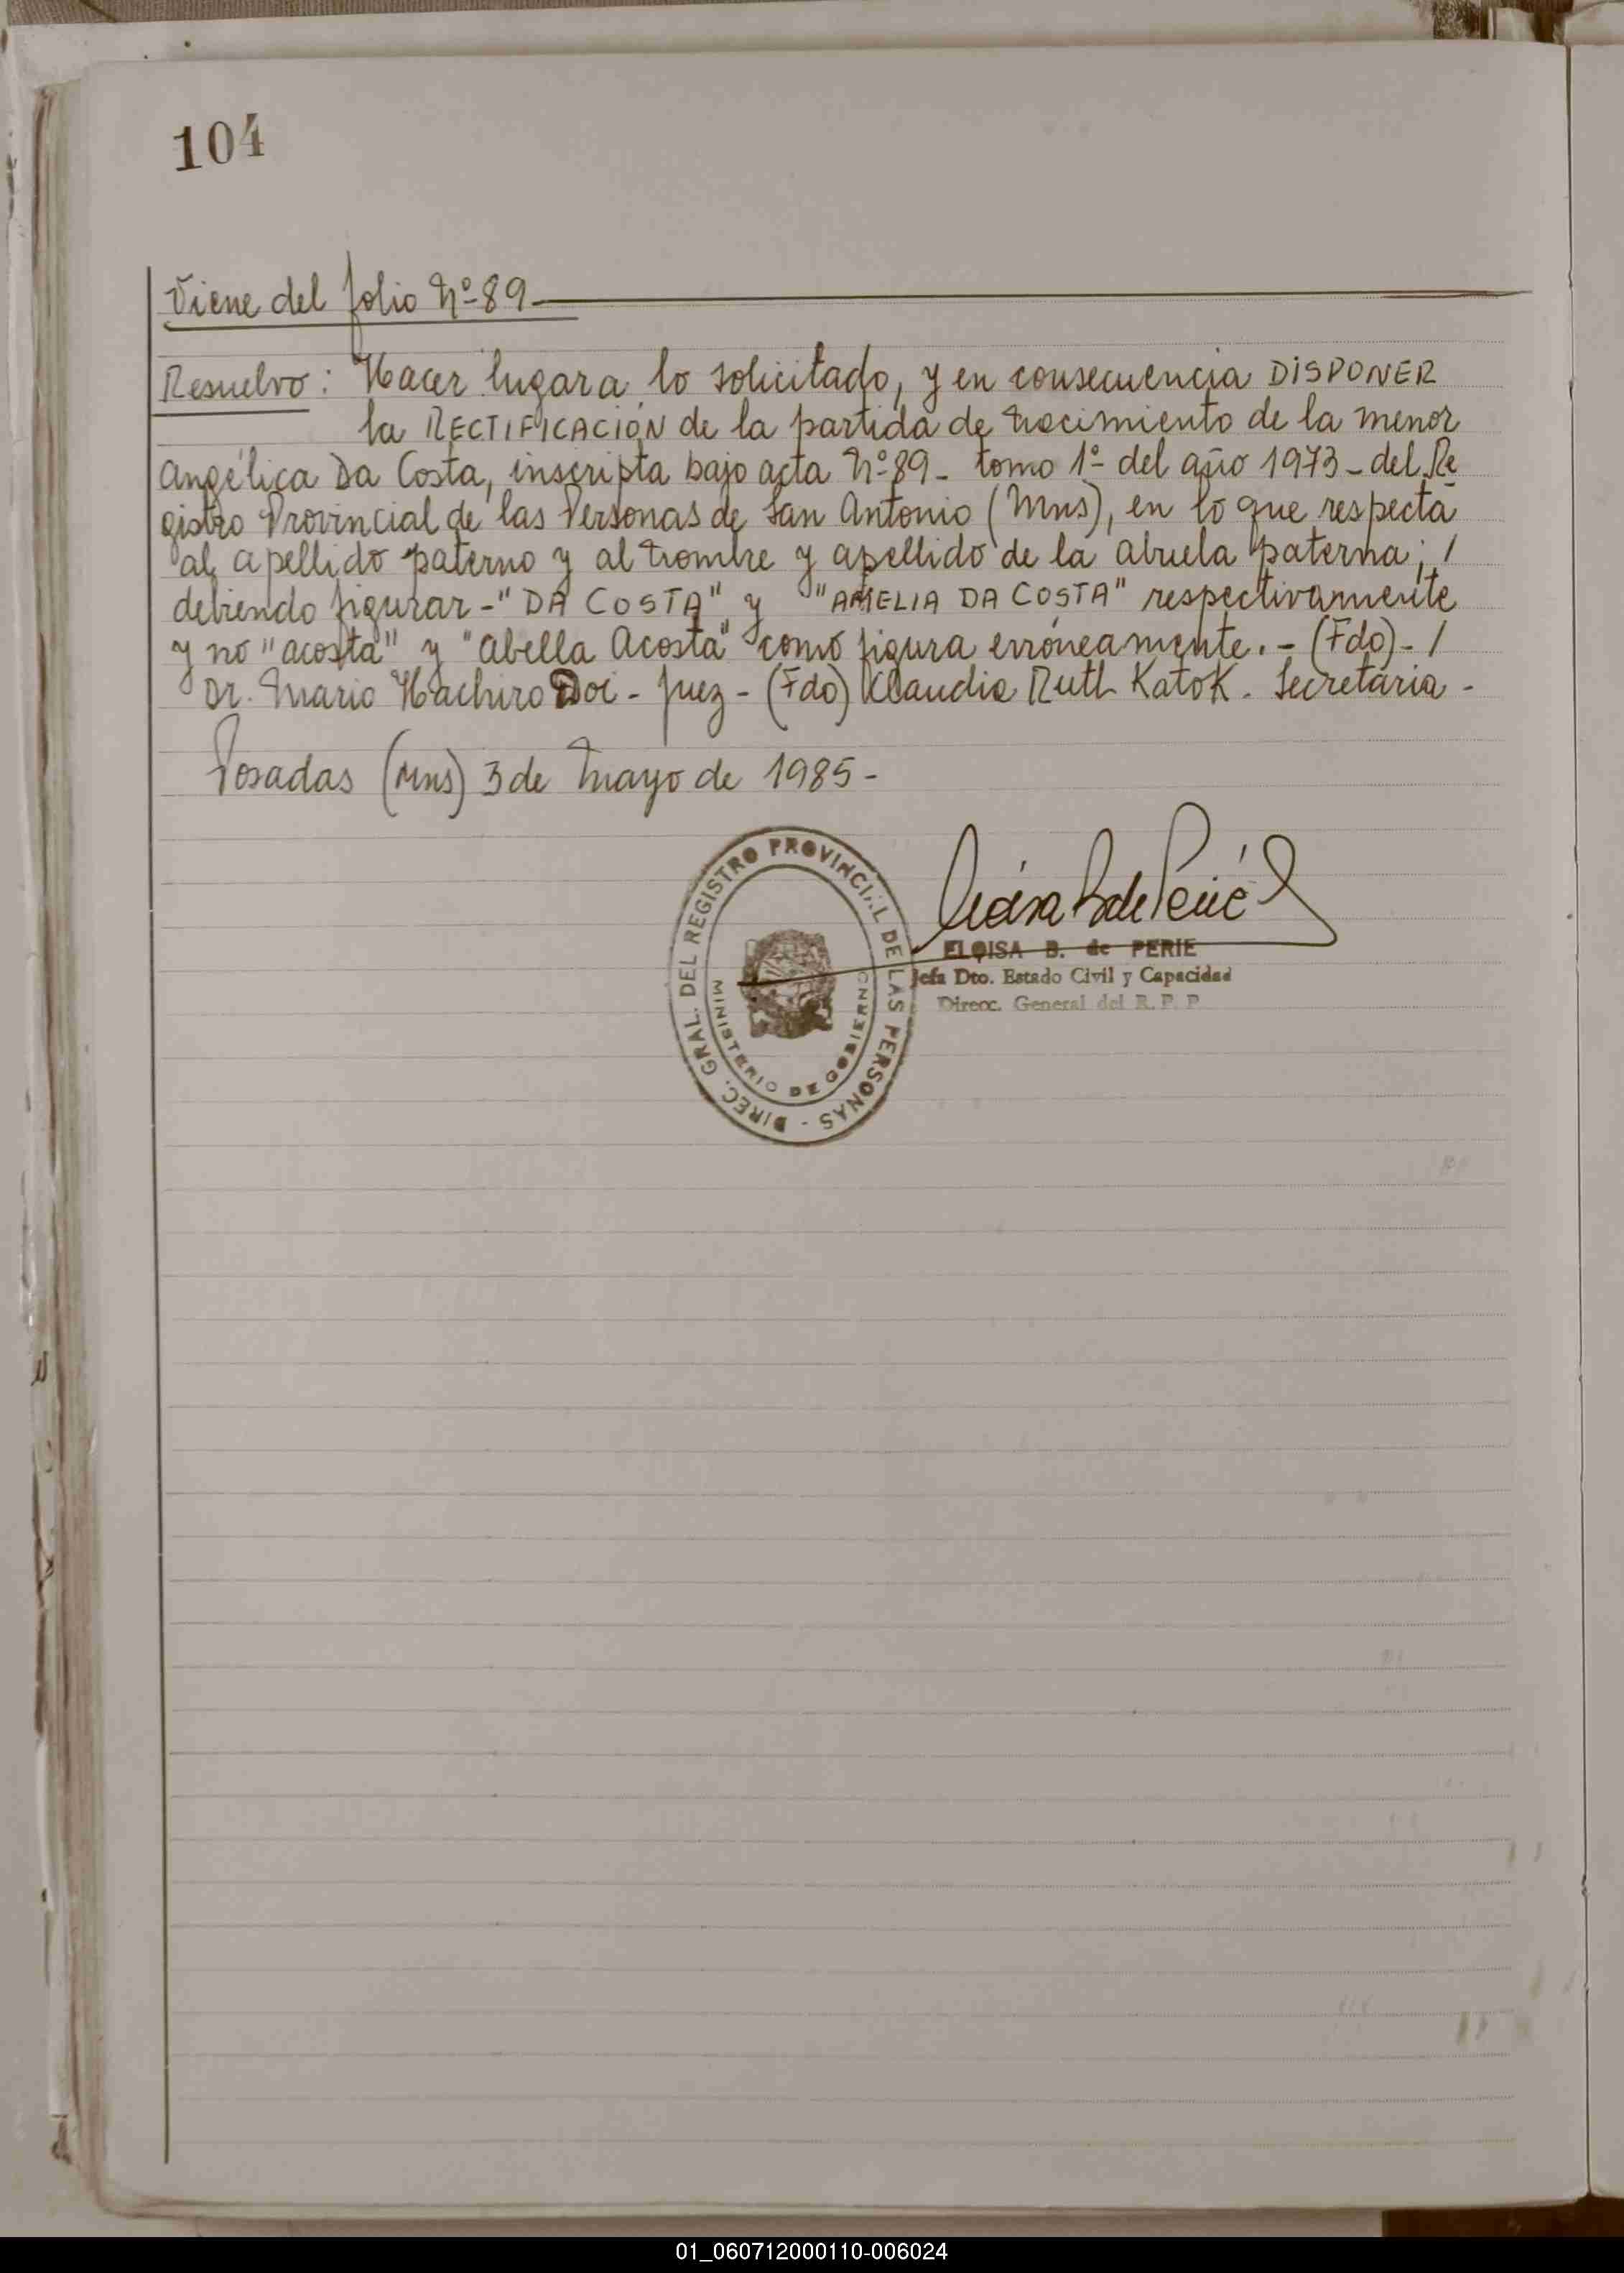 104
Viene del folio Nº 89-
Resuelvo: Hacer lugar a lo solicitado, y en consecuencia DISPONER
la RECTIFICACIÓN de la partida de nacimiento de la menor
Angélica Da Costa, inscripta bajo acta Nº 89- tomo 1º del año 1973- del Re
gistro Provincial de las Personas de San Antonio (Mns), en lo que respecta
al apellido paterno y al nombre y apellido de la abuela paterna; /
debiendo figurar-"DA COSTA" y "AMELIA DA COSTA" respectivamente
y no "acosta" y "Abella Acosta" como figura erróneamente.- (Fdo)- /
Dr. Mario Hachiro Doi- Juez- (Fdo) Klaudia Ruth Katok. Secretaria-
Posadas (Mns) 3 de Mayo de 1985-
DIREC. GRAL. DEL REGISTRO PROVINCIAL DE LAS PERSONAS -
MINISTERIO DE GOBIERNO
ELOISA B. de PERIE
Jefa Dto. Estado Civil y Capacidad
Direcc. General del R. P. P
01_060712000110-006024